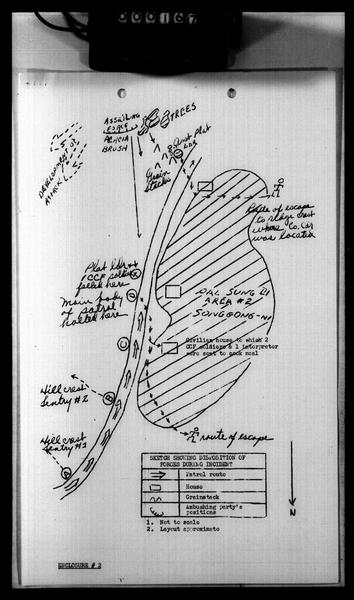 000167
ASSAULTING
FORCE
ACACIA
BRUSH
TREES
Asst Plat
LDR
Grain
Stacks
DEVELOPMENT OF
ATTACK
Route of escape
to ridge crest
where Co. Cdr
was located
Plat Ldr &
CCF soldier
felled here
Main body
of patrol
halted here
DAL SUNG DI
AREA #2
SONGGONG-NI
Civilian house to which 2
CCF soldiers & 1 interpretor
were sent to cook meal
C
Hillcrest
Sentry #2
B
Hillcrest
Sentry #1
A
route of escape
SKETCH SHOWING DISPOSITION OF
FORCES DURING INCIDENT
Patrol route
House
Grainstack
Ambushing party's
positions
1. Not to scale
2. Layout approximate
N
ENCLOSURE # 2